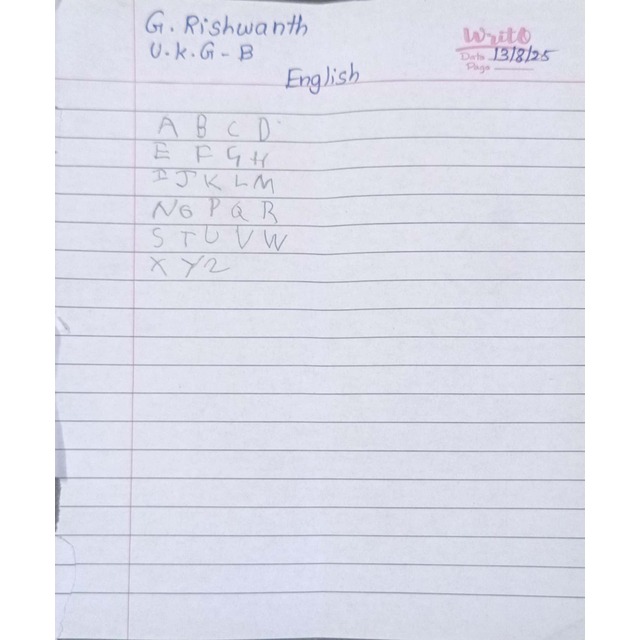 G. Rishwanth
U.K.G - B
Write
Date 13/8/25
Page
English
A B C D
E F G H
I J K L M
N O P Q R
S T U V W
X Y Z